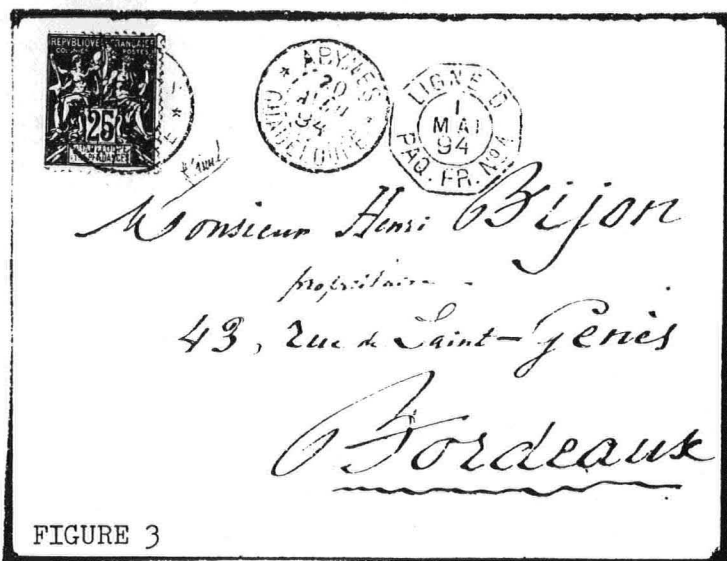 REPUBLIQUE FRANCAISE
COLONIES POSTES
25
ABYMES
20
94
GUADELOUPE
LIGNE D
1
MAI
94
PAQ. FR. No 4
Monsieur Henri Bijon
propriétaire
43, Rue de Saint-Geniès
Bordeaux
FIGURE 3